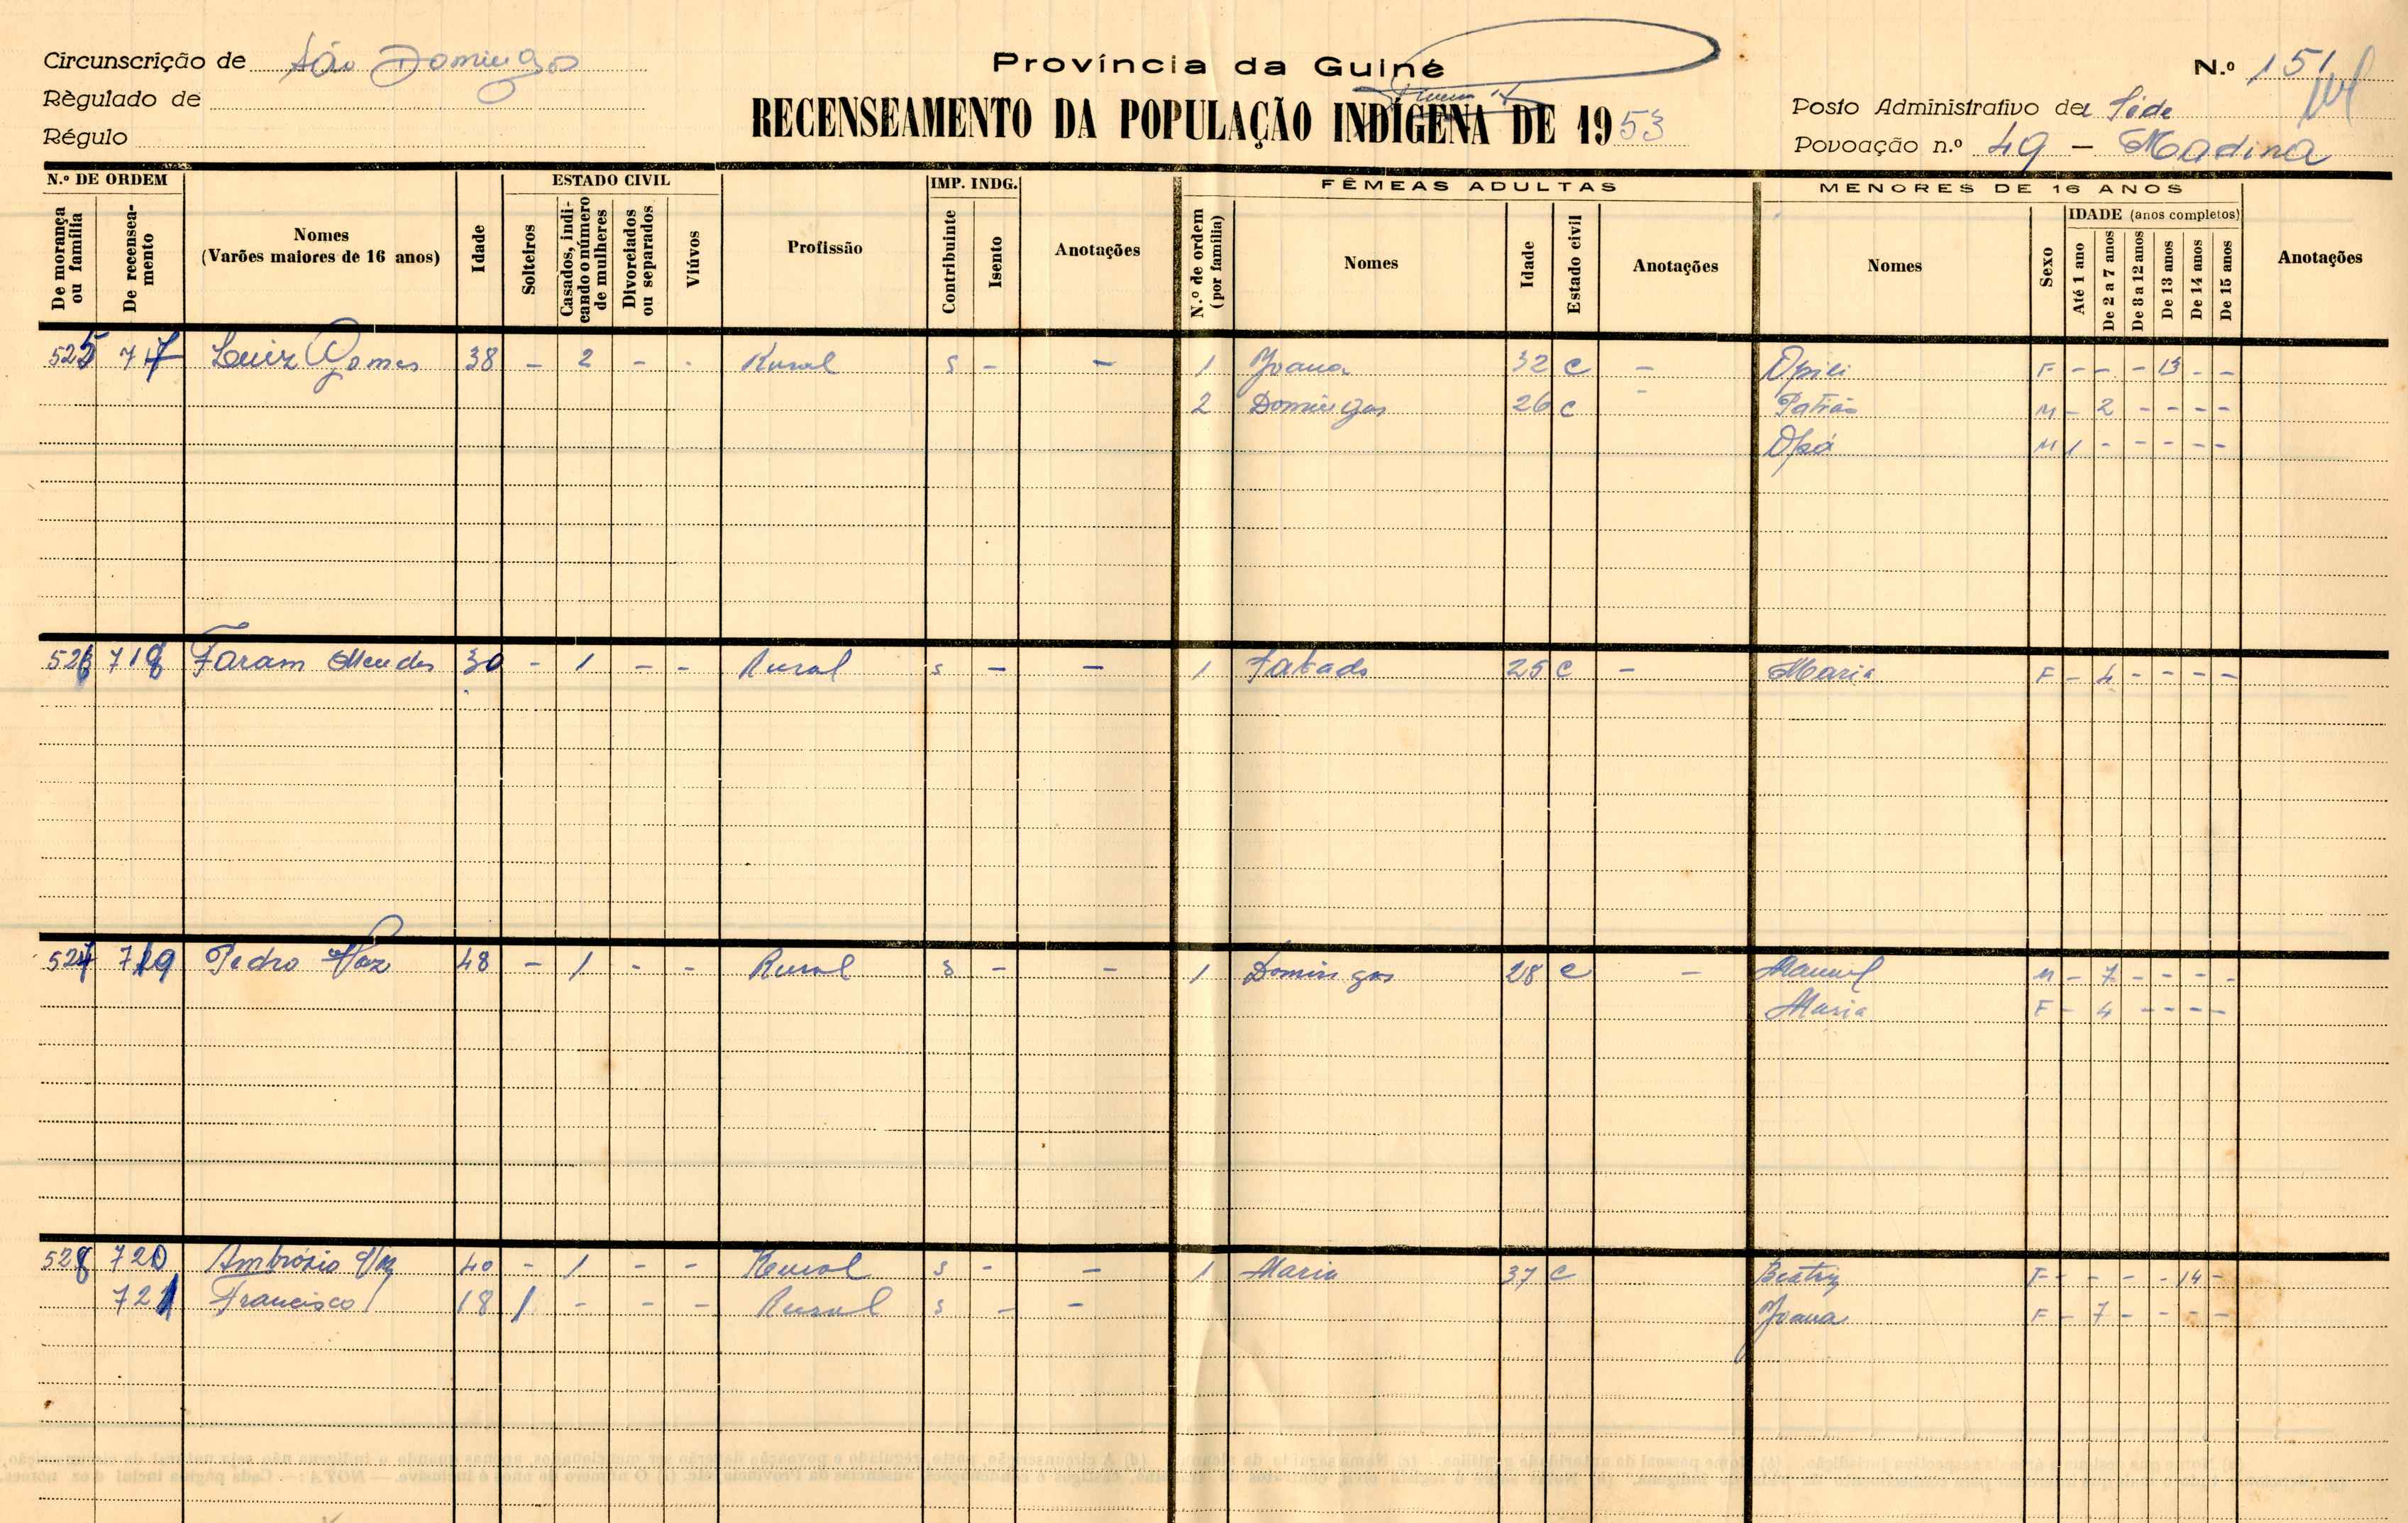 Circunscrição de São Domingos
Règulado de
Régulo
Província da Guiné
RECENSEAMENTO DA POPULAÇÃO INDÍGENA DE 1953
N.º 151
Posto Administrativo de Séde
Povoação n.º 49 - Madina
N.º DE ORDEM ESTADO CIVIL IMP. INDG. FÊMEAS ADULTAS MENORES DE 16 ANOS
De morança ou família De recenseamento Nomes (Varões maiores de 16 anos) Idade Solteiros Casados, indicando o número de mulheres Divorciados ou separados Viúvos Profissão Contribuinte Isento Anotações N.º de ordem (por família) Nomes Idade Estado civil Anotações Nomes Sexo IDADE (anos completos) Até 1 ano De 2 a 7 anos De 8 a 12 anos De 13 anos De 14 anos De 15 anos Anotações
525 717 Luiz Gomes 38 - 2 - - Rural s - - 1 Joana 32 c - F - - - 13 - -
2 Domingas 26 c - M - 2 - - - -
M 1 - - - - -
526 718 Faram Mendes 30 - 1 - - Rural s - - 1 25 c - Maria F - 4 - - - -
527 719 Pedro Vaz 48 - 1 - - Rural s - - 1 Domingas 28 c - Manuel M - 7 - - - -
Maria F - 4 - - - -
528 720 Ambrósio 40 - 1 - - Rural s - - 1 Maria 37 c Beatriz F - - - - 14 -
721 Francisco 18 1 - - - Rural s - - Joana F - 7 - - - -